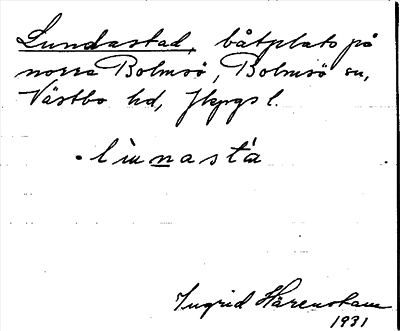 Lundastad, båtplats på
norra Bolmsö, Bolmsö sn,
Västbo hd, Jkpgs l.
Ingrid
1931